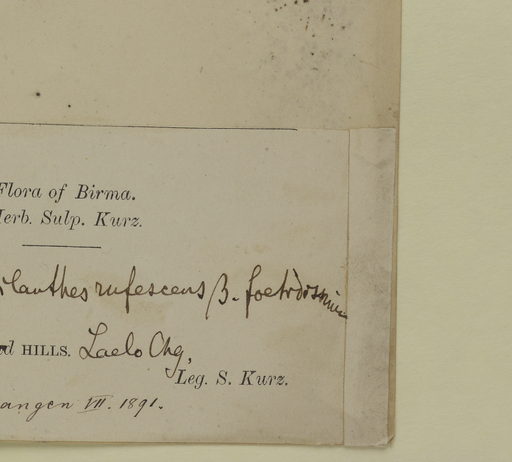 Flora of Birma.
Herb. Sulp. Kurz.
ilanthes rufescens β. foetidissimum
HILLS. Laelo Chg,
Leg. S. Kurz.
angen VII. 1891.